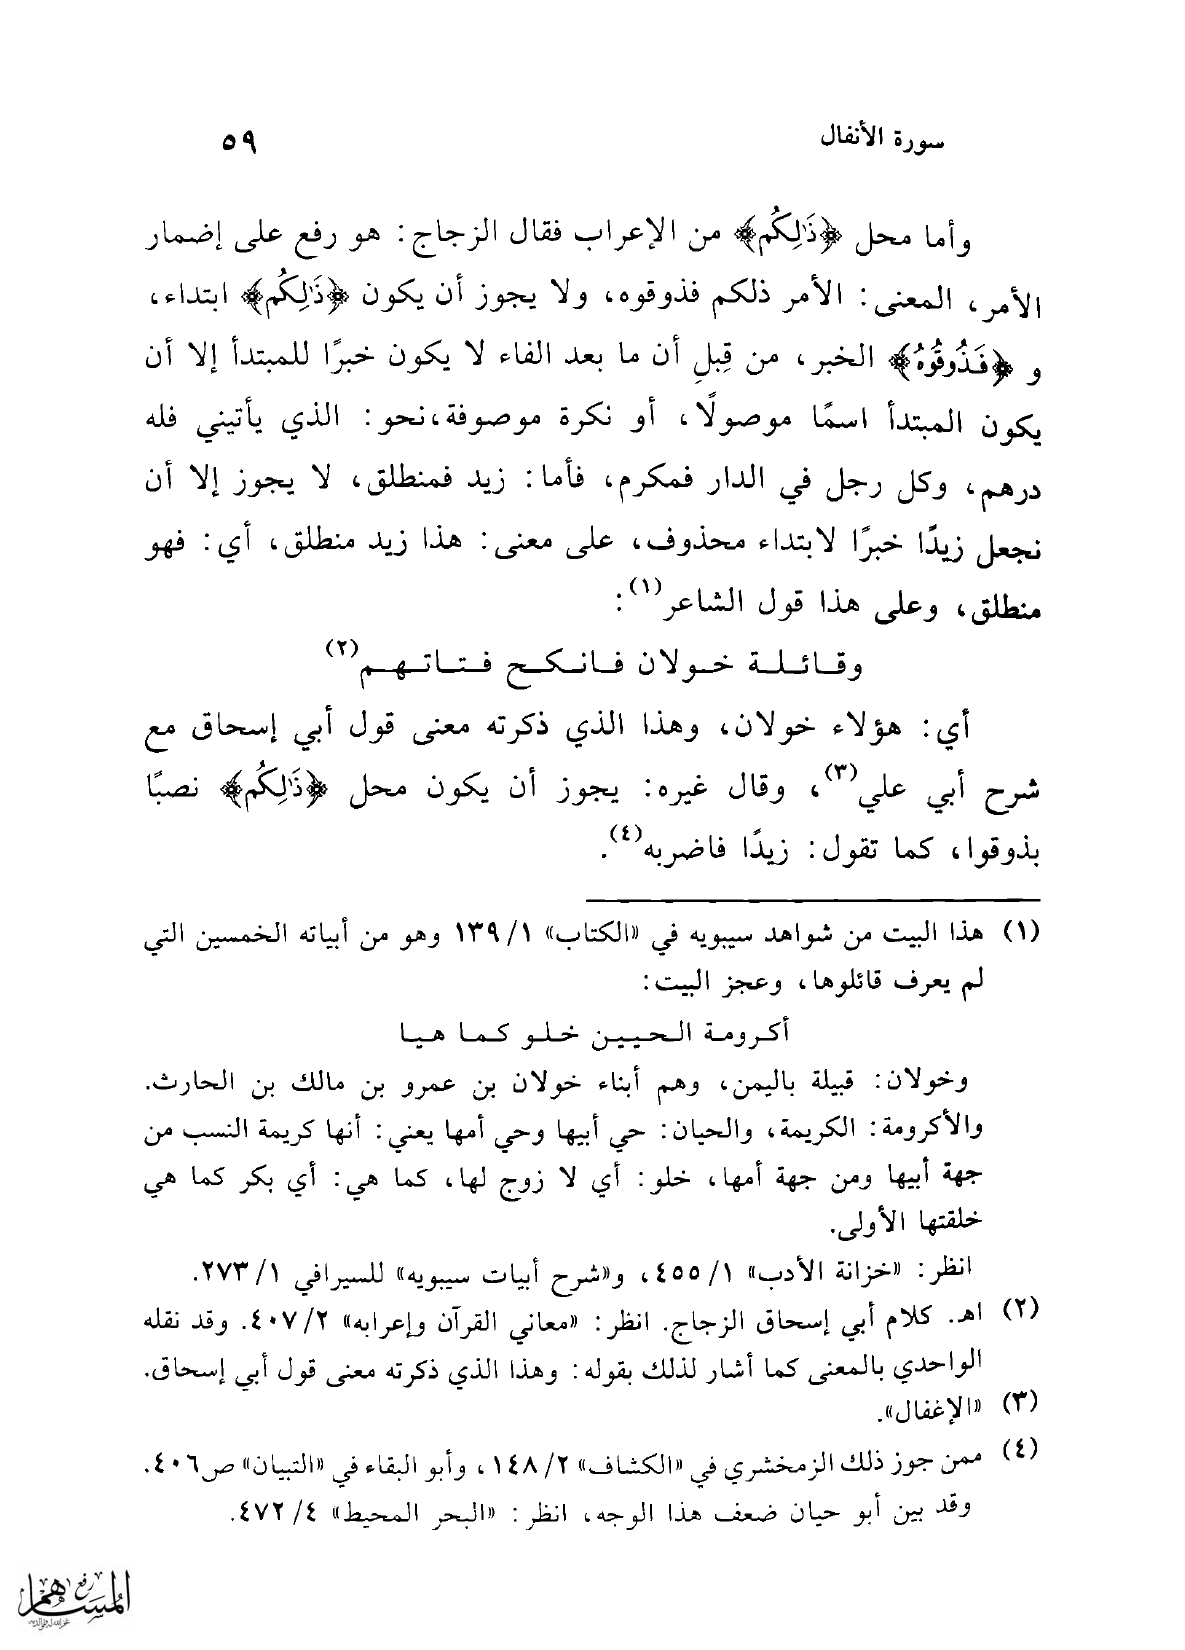 سورة الأنفال ٥٩
وأما محل ﴿ذَٰلِكُم﴾ من الإعراب فقال الزجاج: هو رفع على إضمار
الأمر، المعنى: الأمر ذلكم فذوقوه، ولا يجوز أن يكون ﴿ذَٰلِكُم﴾ ابتداء،
و ﴿فَذُوقُوهُ﴾ الخبر، من قِبلِ أن ما بعد الفاء لا يكون خبرًا للمبتدأ إلا أن
يكون المبتدأ اسمًا موصولًا، أو نكرة موصوفة،نحو: الذي يأتيني فله
درهم، وكل رجل في الدار فمكرم، فأما: زيد فمنطلق، لا يجوز إلا أن
نجعل زيدًا خبرًا لابتداء محذوف، على معنى: هذا زيد منطلق، أي: فهو
منطلق، وعلى هذا قول الشاعر(١):
وقائلة خولان فانكح فتاتهم(٢)
أي: هؤلاء خولان، وهذا الذي ذكرته معنى قول أبي إسحاق مع
شرح أبي علي(٣)، وقال غيره: يجوز أن يكون محل ﴿ذَٰلِكُم﴾ نصبًا
بذوقوا، كما تقول: زيدًا فاضربه(٤).
(١) هذا البيت من شواهد سيبويه في «الكتاب» ١/ ١٣٩ وهو من أبياته الخمسين التي
لم يعرف قائلوها، وعجز البيت:
أكرومة الحيين خلو كما هيا
وخولان: قبيلة باليمن، وهم أبناء خولان بن عمرو بن مالك بن الحارث.
والأكرومة: الكريمة، والحيان: حي أبيها وحي أمها يعني: أنها كريمة النسب من
جهة أبيها ومن جهة أمها، خلو: أي لا زوج لها، كما هي: أي بكر كما هي
خلقتها الأولى.
انظر: «خزانة الأدب» ١/ ٤٥٥، و«شرح أبيات سيبويه» للسيرافي ١/ ٢٧٣.
(٢) اهـ. كلام أبي إسحاق الزجاج. انظر: «معاني القرآن وإعرابه» ٢/ ٤٠٧. وقد نقله
الواحدي بالمعنى كما أشار لذلك بقوله: وهذا الذي ذكرته معنى قول أبي إسحاق.
(٣) «الإغفال».
(٤) ممن جوز ذلك الزمخشري في «الكشاف» ٢/ ١٤٨، وأبو البقاء في «التبيان» ص٤٠٦.
وقد بين أبو حيان ضعف هذا الوجه، انظر: «البحر المحيط» ٤/ ٤٧٢.